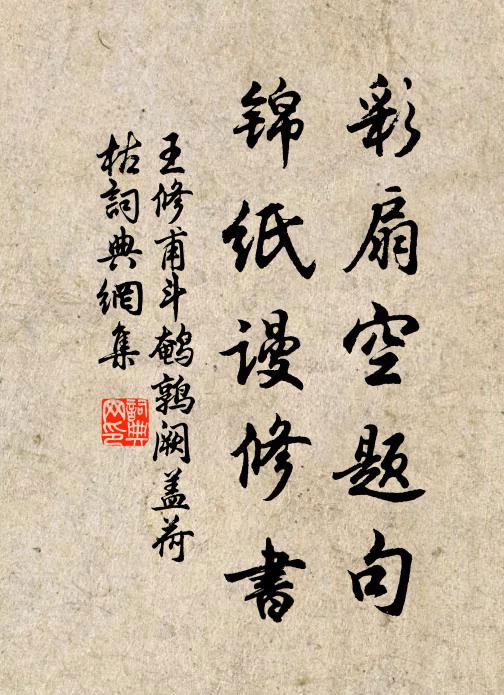 彩扇空题句
锦纸谩修书
王修甫斗鹌鹑阙盖荷
枯詞典網集
詞典网印